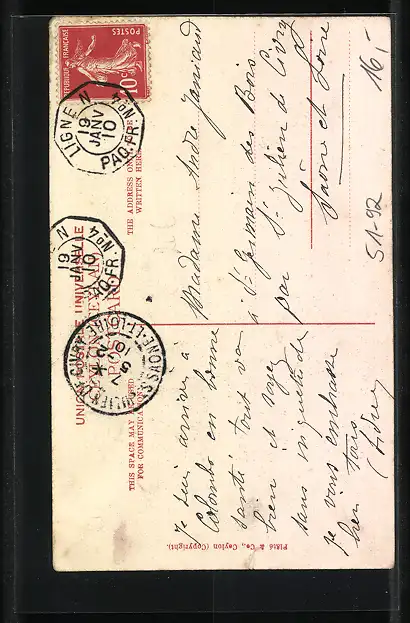 UNION POSTALE UNIVERSELLE
CEYLON (CEYLAN)
POST CARD
THIS SPACE MAY BE USED
FOR COMMUNICATION
THE ADDRESS ONLY TO BE
WRITTEN HERE
RÉPUBLIQUE FRANÇAISE
POSTES
10c
LIGNE N
PAQ. FR. No 4
19
JANV
10
LIGNE N
PAQ. FR. No 4
19
JANV
10
SAONE-ET-LOIRE
Je suis arrivé à
Colombo en bonne
santé tout va
bien et soyez
sans inquiétude
je vous embrasse
bien tous
Madame André
à St Germain des Bois
par St Julien de Civry
Saone et Loire
Plâté & Co., Ceylon (Copyright).
16,-
51-92